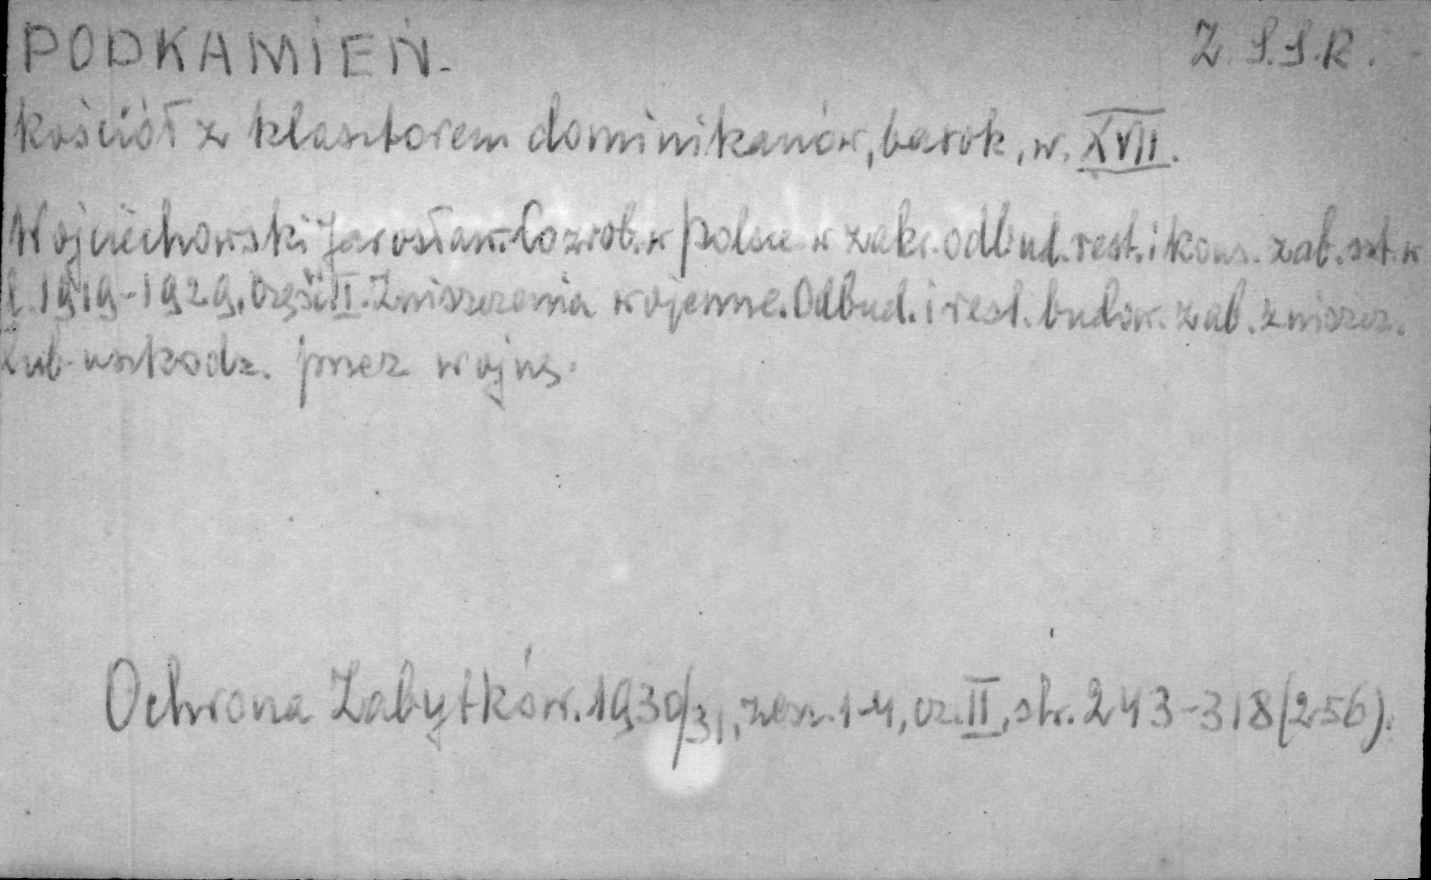 PODKAMIEŃ. Z.S.S.R.
kościół z klasztorem dominikanów, barok, w. XVII.
Wojciechowski Jarosław. Co zrob. w Polsce w zakr. odbud. rest. i kons. zab. szt. w
l. 1919-1929. Część II. Zniszczenia wojenne. Odbud. i rest. budow. zab. zniszcz.
lub uszkodz. przez wojnę.
Ochrona Zabytków. 1930/31, zesz. 1-4, cz. II, str. 243-318 (256).